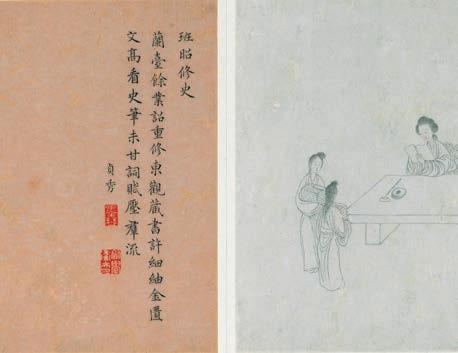 班昭修史
蘭臺餘業詔重修東觀藏書許細紬金匱
文高看史筆未甘詞賦壓羣流
貞秀